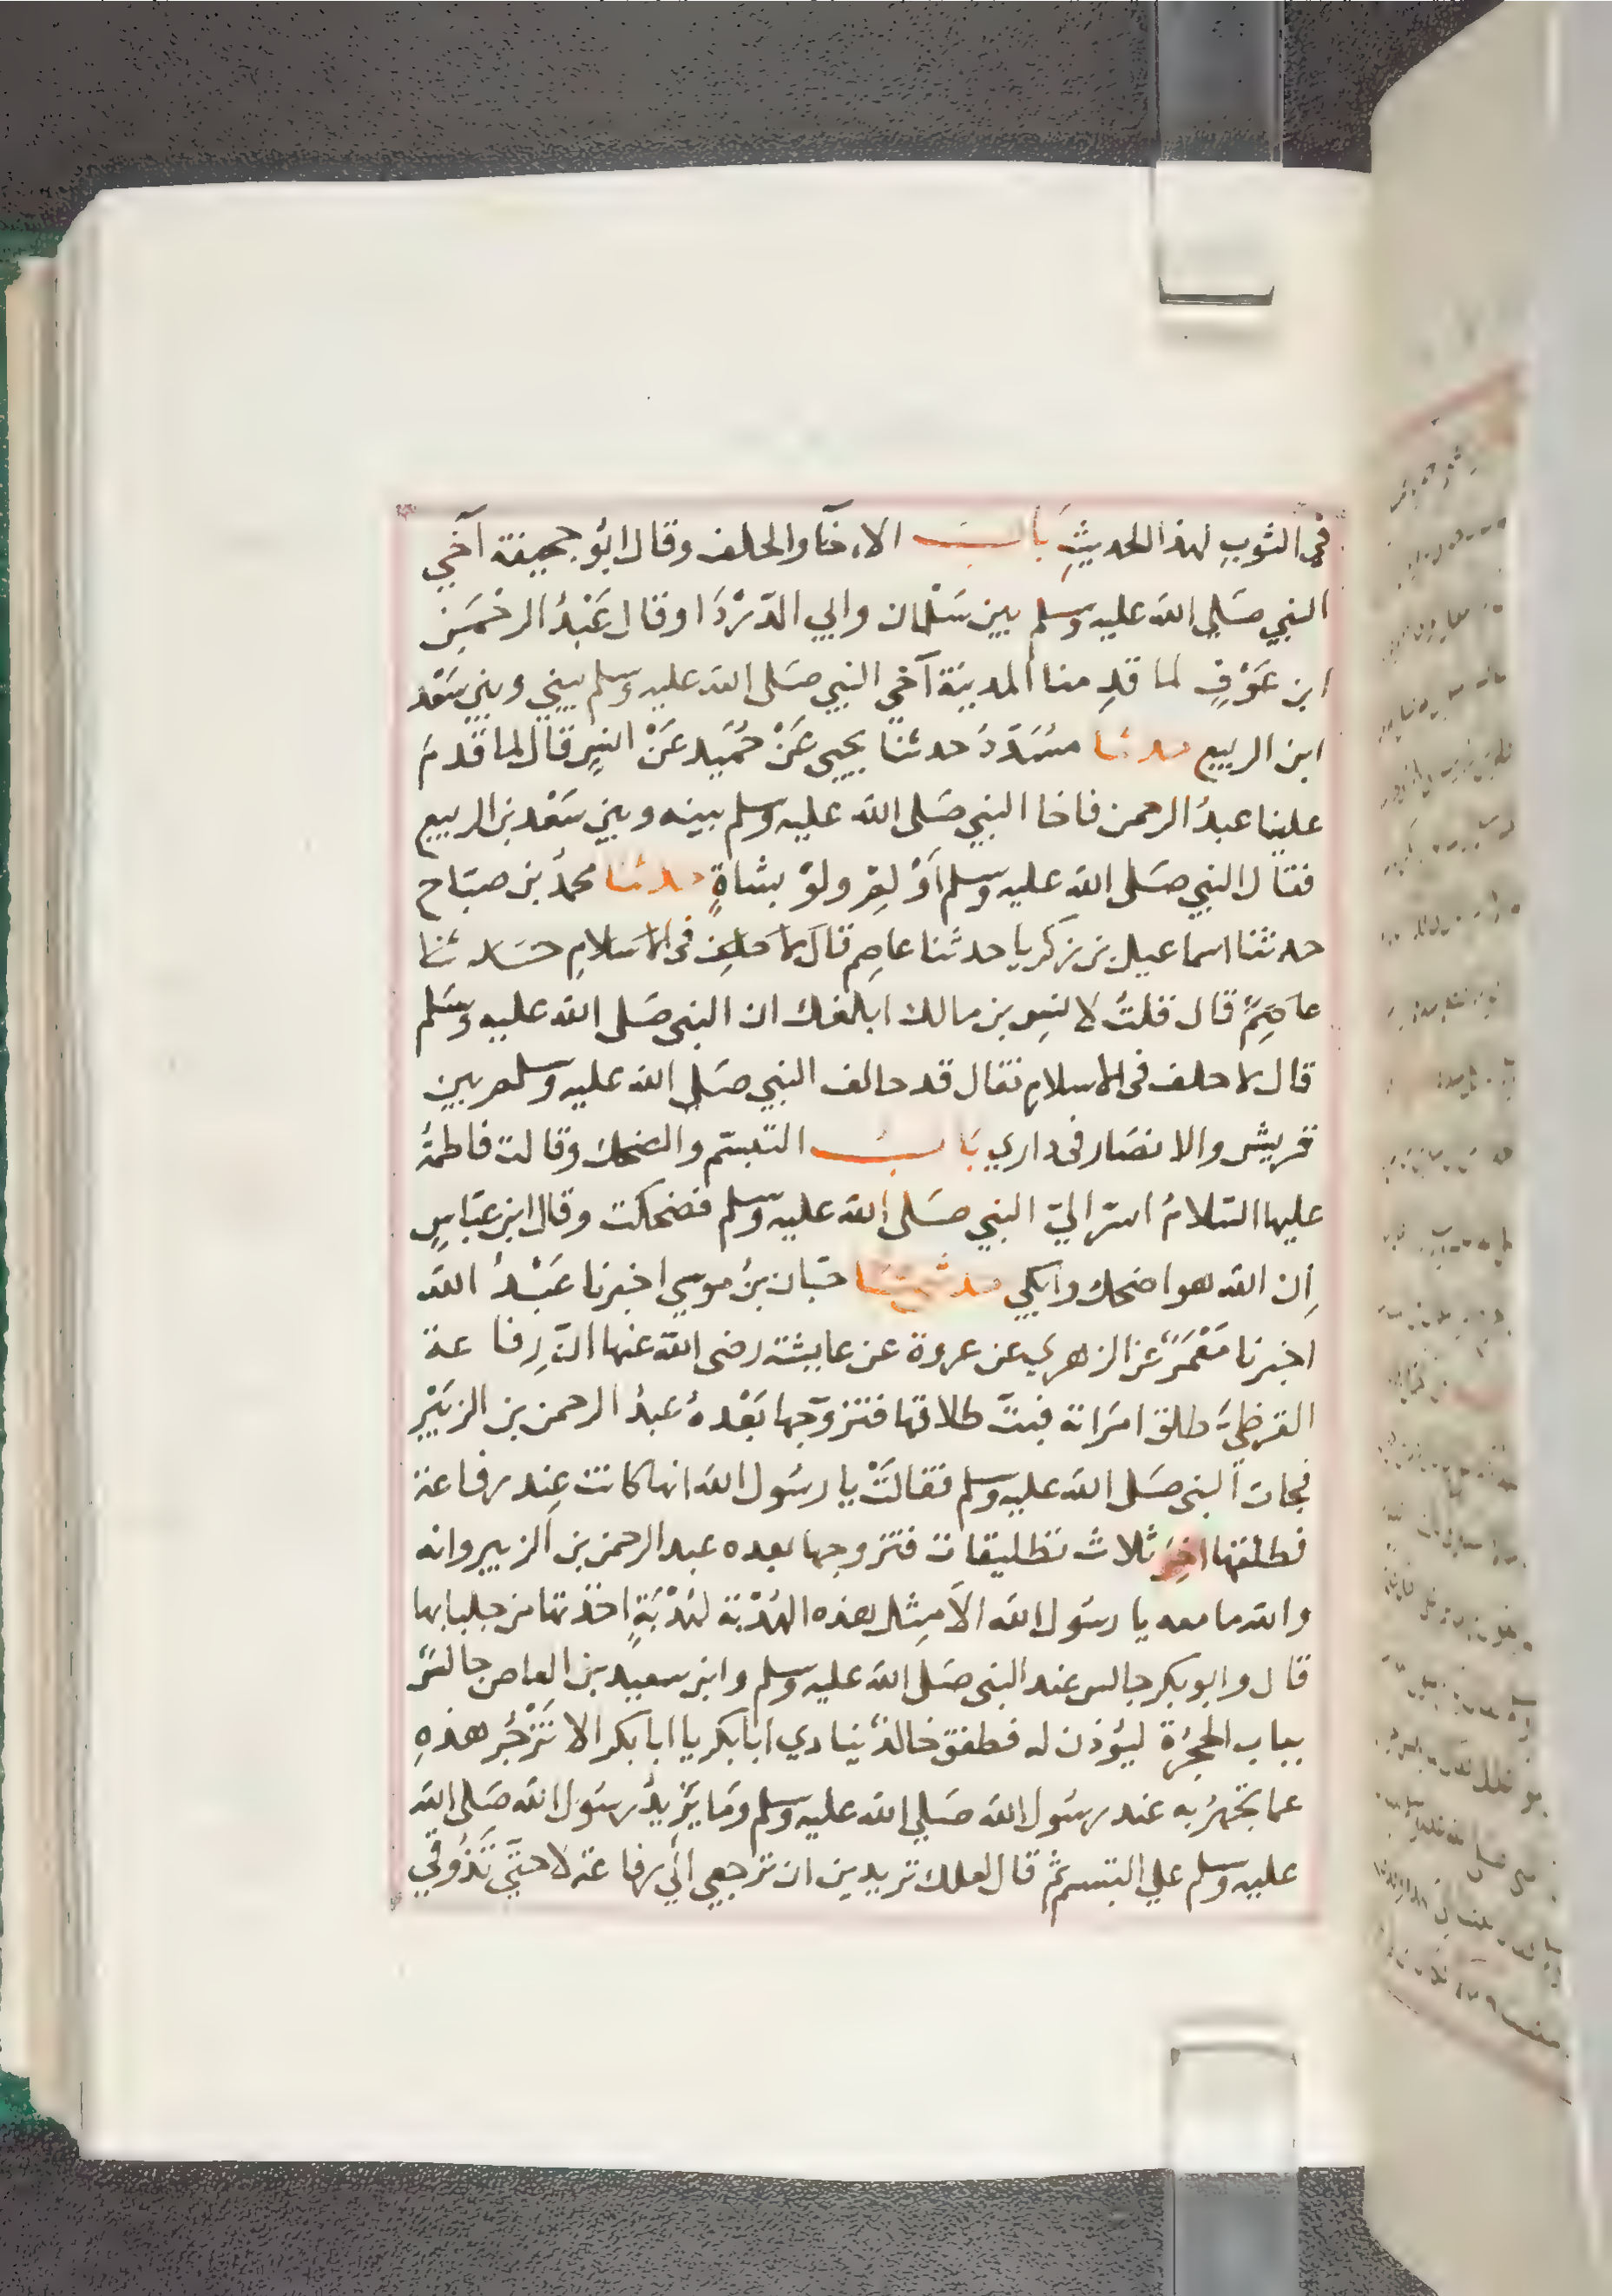 في الثوبِ لهذا الحديثِ بَابُ الاِخآ والحلف وقال ابُو جحيفة آخي
النبي صَلي الله عليه وسلم بين سَلْمان وابي الدّرْدَا وقال عَبْدُ الرحْمَنِ
ابن عَوْفٍ لما قدِمنا المدينة آخي النبي صَلى الله عليه وسلم بيني وبين سَعْد
ابن الربيع حدثنا مسُدَّدُ حدثنا يحيى عَنْ حُمَيد عَنْ انسٍ قال لما قدمَ
علينا عبدُ الرحمن فاخا النبي صَلى الله عليه وسلم بينه وبين سَعْد بن الربيع
فقال النبي صَلى الله عليه وسلم اَوْلِمْ ولوْ بشاةٍ حدثنا محمدُ بن صبّاح
حدثنا اسماعيل بن زكريا حدثنا عاصِم قال لا حلِف في الاسلامِ حَدثنا
عاصِمٌ قال قلتُ لانسِ بن مالك ابلغك ان النبي صَلى الله عليه وسَلم
قال لا حلف في الاسلامِ فقال قد حالف النبي صَلى الله عليه وسلم بين
قريش والانصَار في داري بَابُ التبسّم والضحك وقالت فاطمةُ
عليها السّلامُ اسرّ اليّ النبي صَلى الله عليه وسلم فضحكت وقال ابن عبّاسٍ
اِن الله هو اضحك وابكي حدثنا حبّان بنُ موسي اخبرنا عَبْدُ الله
اخبرنا مَعْمَرٌ عن الزهري عن عروة عن عايشة رضى الله عنها انّ رِفاعة
القرظيَّ طلق امرَاته فبتّ طلاقها فتزوّجها بَعْدهُ عبدُ الرحمن بن الزبَيْر
فجات النبي صَلى الله عليه وسلم فقالتْ يا رسُول الله انها كانت عِند رفاعة
فطلقها اخِرَ ثلاث تطليقات فتزوجها بعده عبد الرحمن بن الزبير وانه
والله ما معه يا رسَول الله الاّ مِثل هذه الهُدْبة لهُدْبَةٍ اخذتها من جلبابها
قال وابو بكر جالس عند النبي صَلى الله عليه وسلم وابن سعيد بن العاص جالسٌ
بباب الحجرُة ليُؤذن له فطفق خالدٌ ينادي ابا بكر يا ابا بكر الا تَزْجُر هذهِ
عما تجهرُ به عند رسُول الله صَلي الله عليه وسلم وَما يَزيدُ رسَول الله صَلى الله
عليه وسلم علي التبسم ثمّ قال لعلك تريدين ان ترجعي اليَ رفاعة لا حتّي تَذُوقي